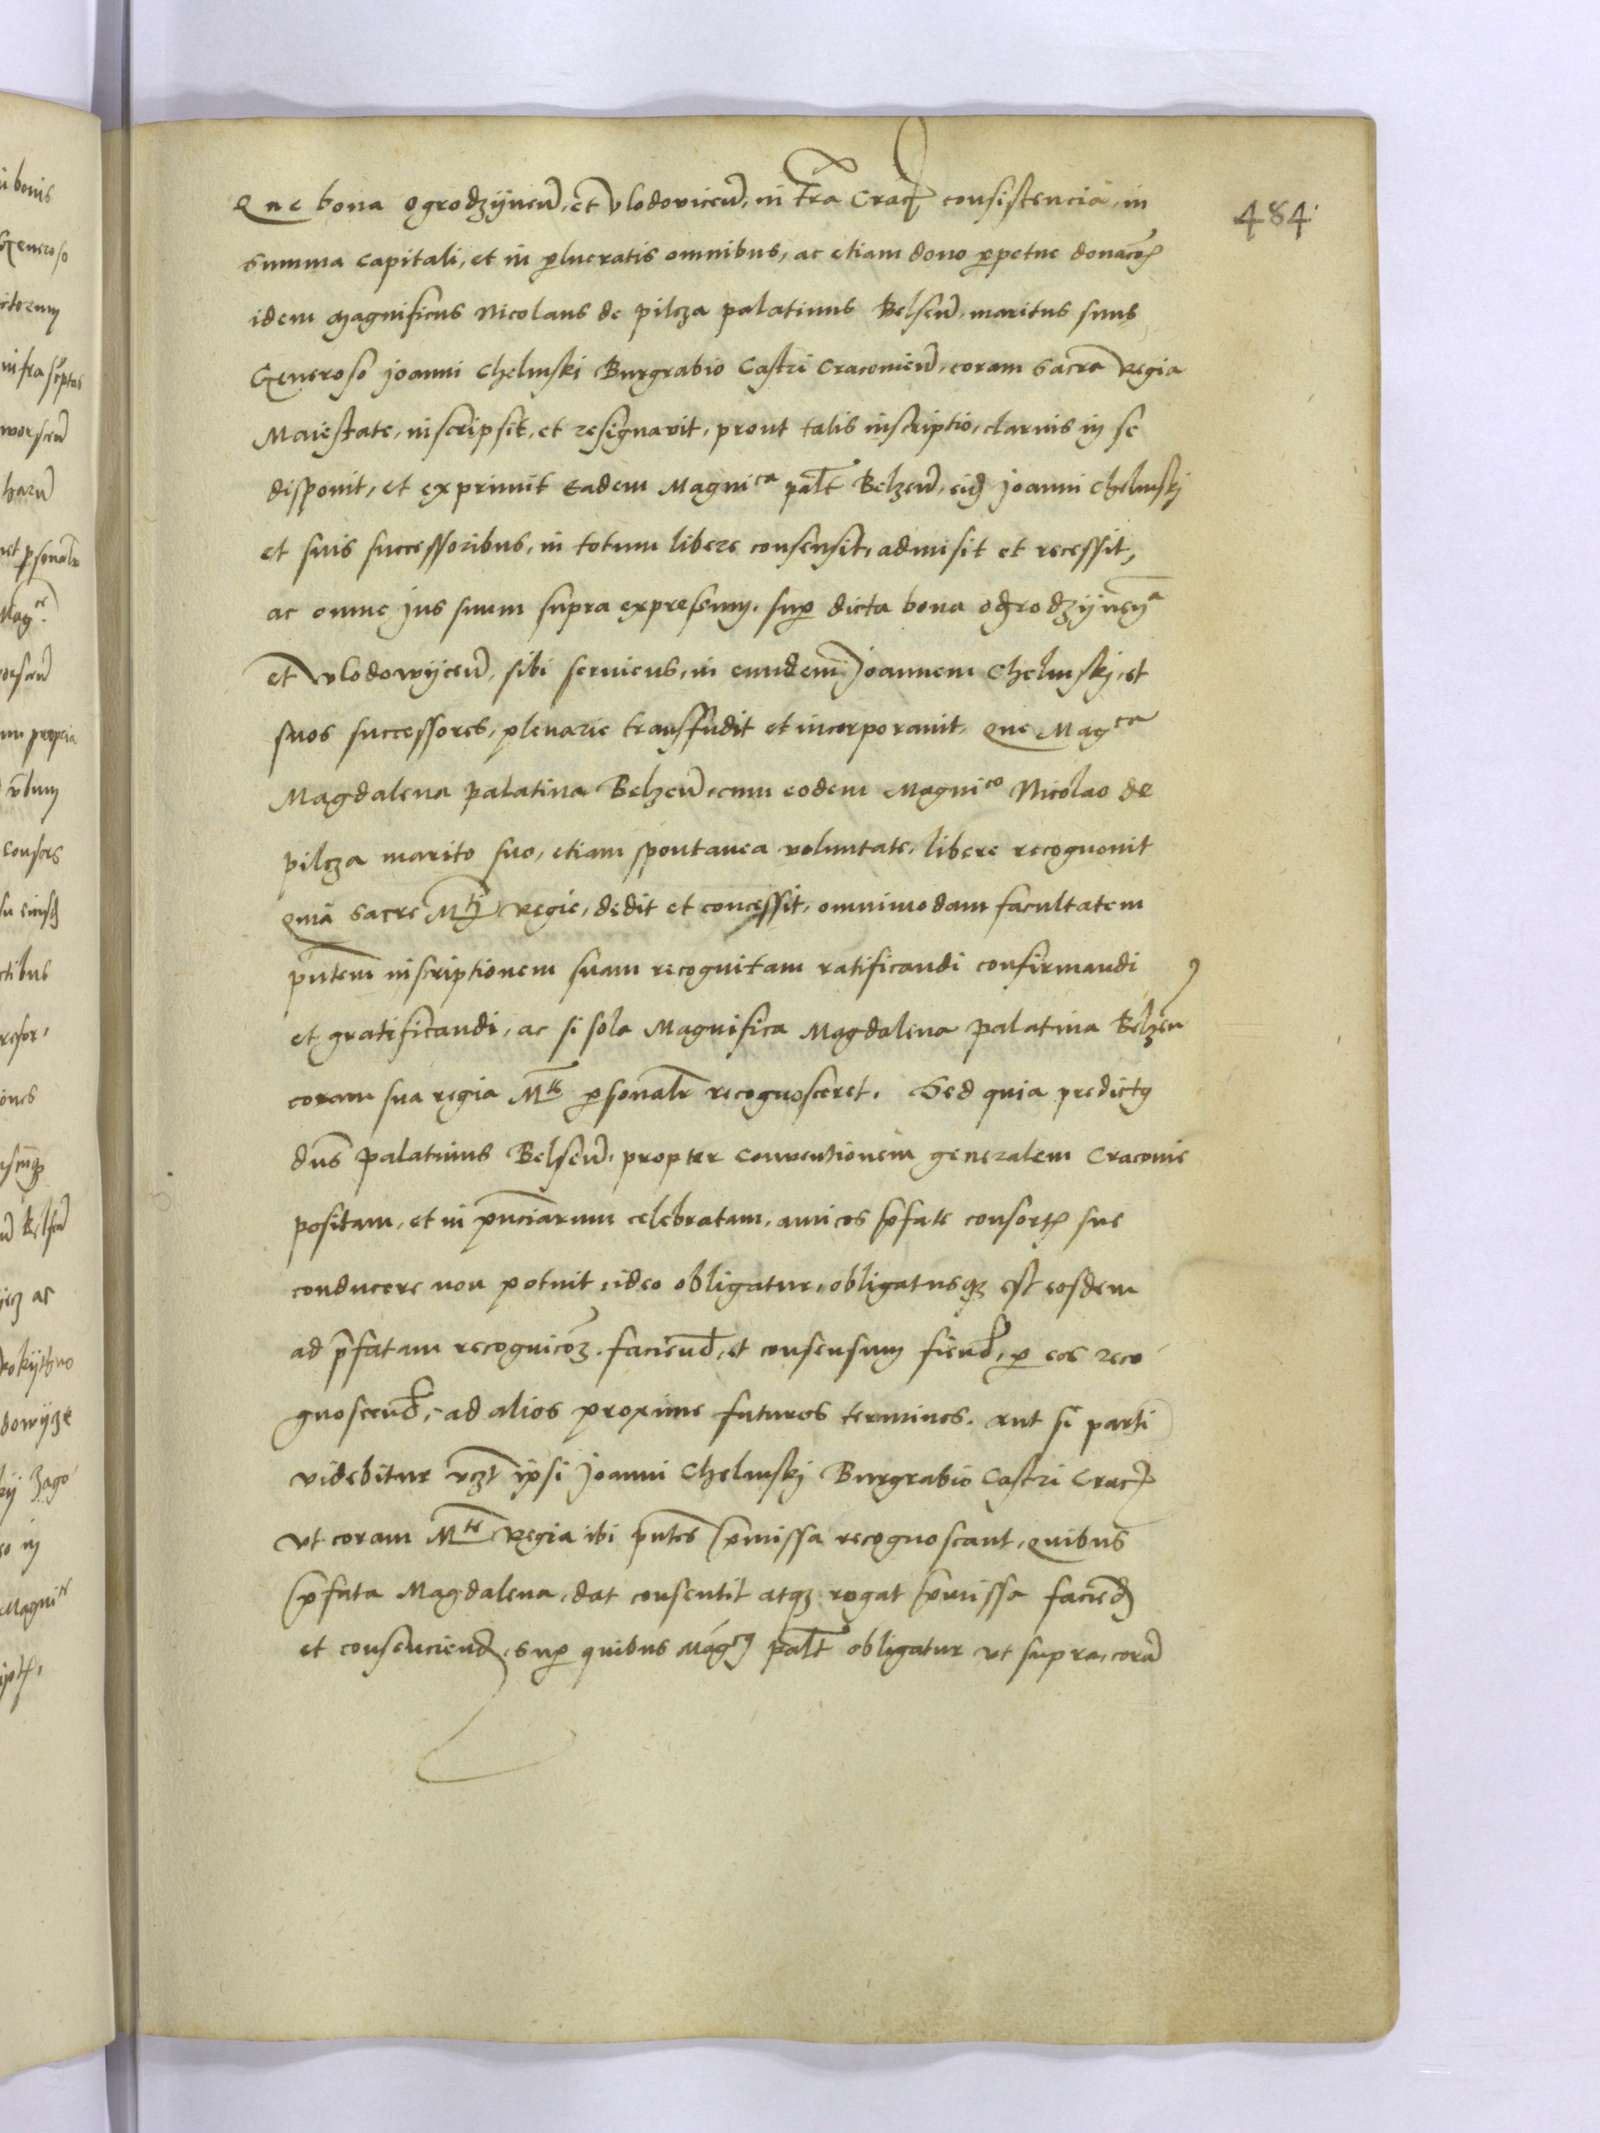 484
Que bona ogrodzÿnen̄, et vlodovicen̄, in tr̄a Crac̄ consistencia, in
summa capitali, et in p̱lucratis omnibus, ac etiam dono p̱petue donac̄o̅
idem magnificus Nicolaus de pilcza palatinus Belsen̄, maritus suus
Generoso joanni Chelmski Burgrabio Castri Cracovien̄, coram Sacra Regia
Maiestate, inscripsit, et resignavit, prout talis inscriptio, clarius in se
disponit, et exprimit Eadem Magni^ca pal̄t Belzen̄, eid̄ Joanni Chelmskj
et suis successoribus, in totum libere consensit, admisit et recessit,
ac omne jus suum supra expressum, sup̱ dicta bona ogrodzÿnen̄^a
et vlodowÿcen̄, sibi serviens, in eundem Joannem Chelmskj, et
suos successores, plenarie transffudit et incorporavit, Que Mag^ca
Magdalena palatina Belzen̄, cum eodem Magni^co Nicolao de
pilcza marito suo, etiam spontanea voluntate, libere recognovit
Quia Sacre M^ti Regie, dedit et concessit, omnimodam facultatem
pn̄tem inscriptionem suam recognitam ratificandi confirmandi
et gratificandi, ac si sola Magnifica Magdalena palatina Belzen̄
coram sua regia M^te p̱sonal̄r recognosceret. Sed quia predict9
dn̄s palatinus Belsen̄, propter conventionem generalem Cracovie
positam, et in p̱nciarum celebratam, amicos p̱fate consort̄ sue
conducere non potuit, ideo obligatur, obligatusq3 est eosdem
ad p̄fatam recognic̄o3, faciend̄, et consensum fiend̄, p̱ eos reco
gnoscend̄, ad alios proxime futuros terminos. Aut si parti
videbitur vz̄t ipsi Joanni Chelmskj Burgrabio Castri Crac̄
vt coram M^te Regia ibi pn̄tes p̱missa recognoscant, Quibus
p̱fata Magdalena, dat consentit atq3 rogat p̱missa faciēd̄
et consenciend̄, sup̱ quibus Mag^cus pal̄t obligatur vt supra, corā